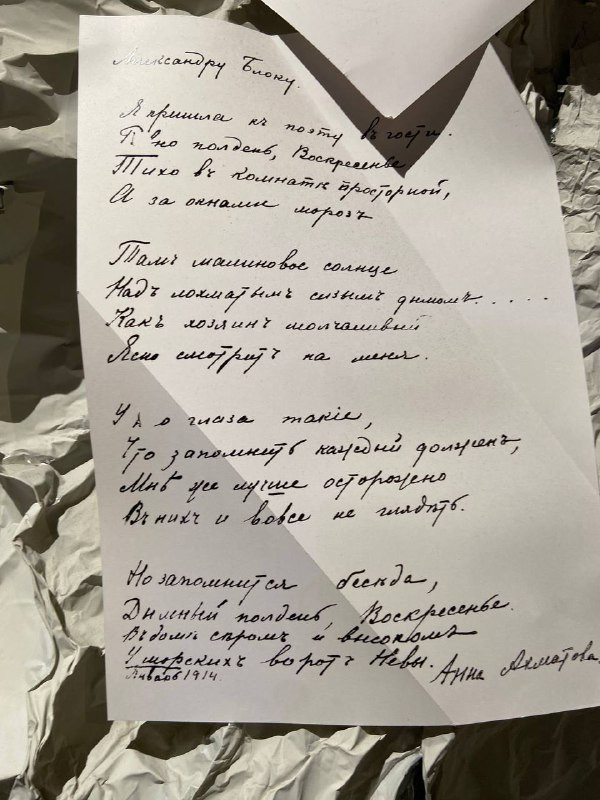 Александру Блоку.
Я пришла къ поэту въ гости.
Ровно полдень, Воскресенье
Тихо въ комнатѣ просторной,
А за окнами морозъ
Тамъ малиновое солнце
Надъ лохматымъ сизымъ дымомъ.....
Какъ хозяинъ молчаливый
Ясно смотритъ на меня.
У него глаза такіе,
Что запомнить каждый долженъ,
Мнѣ же лучше осторожно
Въ нихъ и вовсе не глядѣть.
Но запомнится бесѣда,
Дымный полдень, Воскресенье.
Въ домѣ сѣромъ и высокомъ
У морскихъ воротъ Невы.
Январь 1914.
Анна Ахматова.